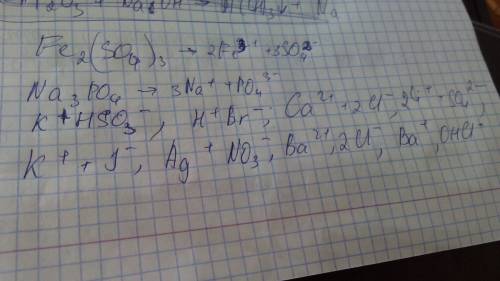 Fe₂(SO₄)₃ → 2Fe³⁺ + 3SO₄²⁻
Na₃PO₄ → 3Na⁺ + PO₄³⁻
K⁺ HSO₃⁻, H⁺ Br⁻, Ca²⁺ + 2Cl⁻, SO₄²⁻,
K⁺ + J⁻, Ag⁺ NO₃⁻, Ba²⁺, 2Cl⁻, Ba⁺, OHCl⁻